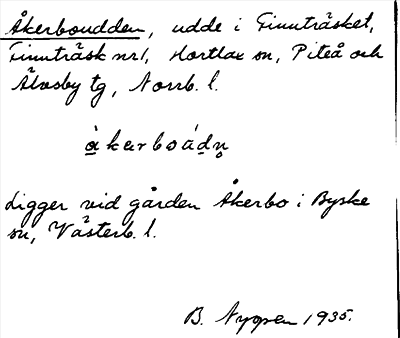 Åkerboudden, udde i Finnträsket,
Finnträsk nr 1, Hortlax sn, Piteå och
Älvsby tg, Norrb. l.
å̀kerboádn̥
Ligger vid gården Åkerbo i Byske
sn, Västerb. l.
B. Nygren 1935.